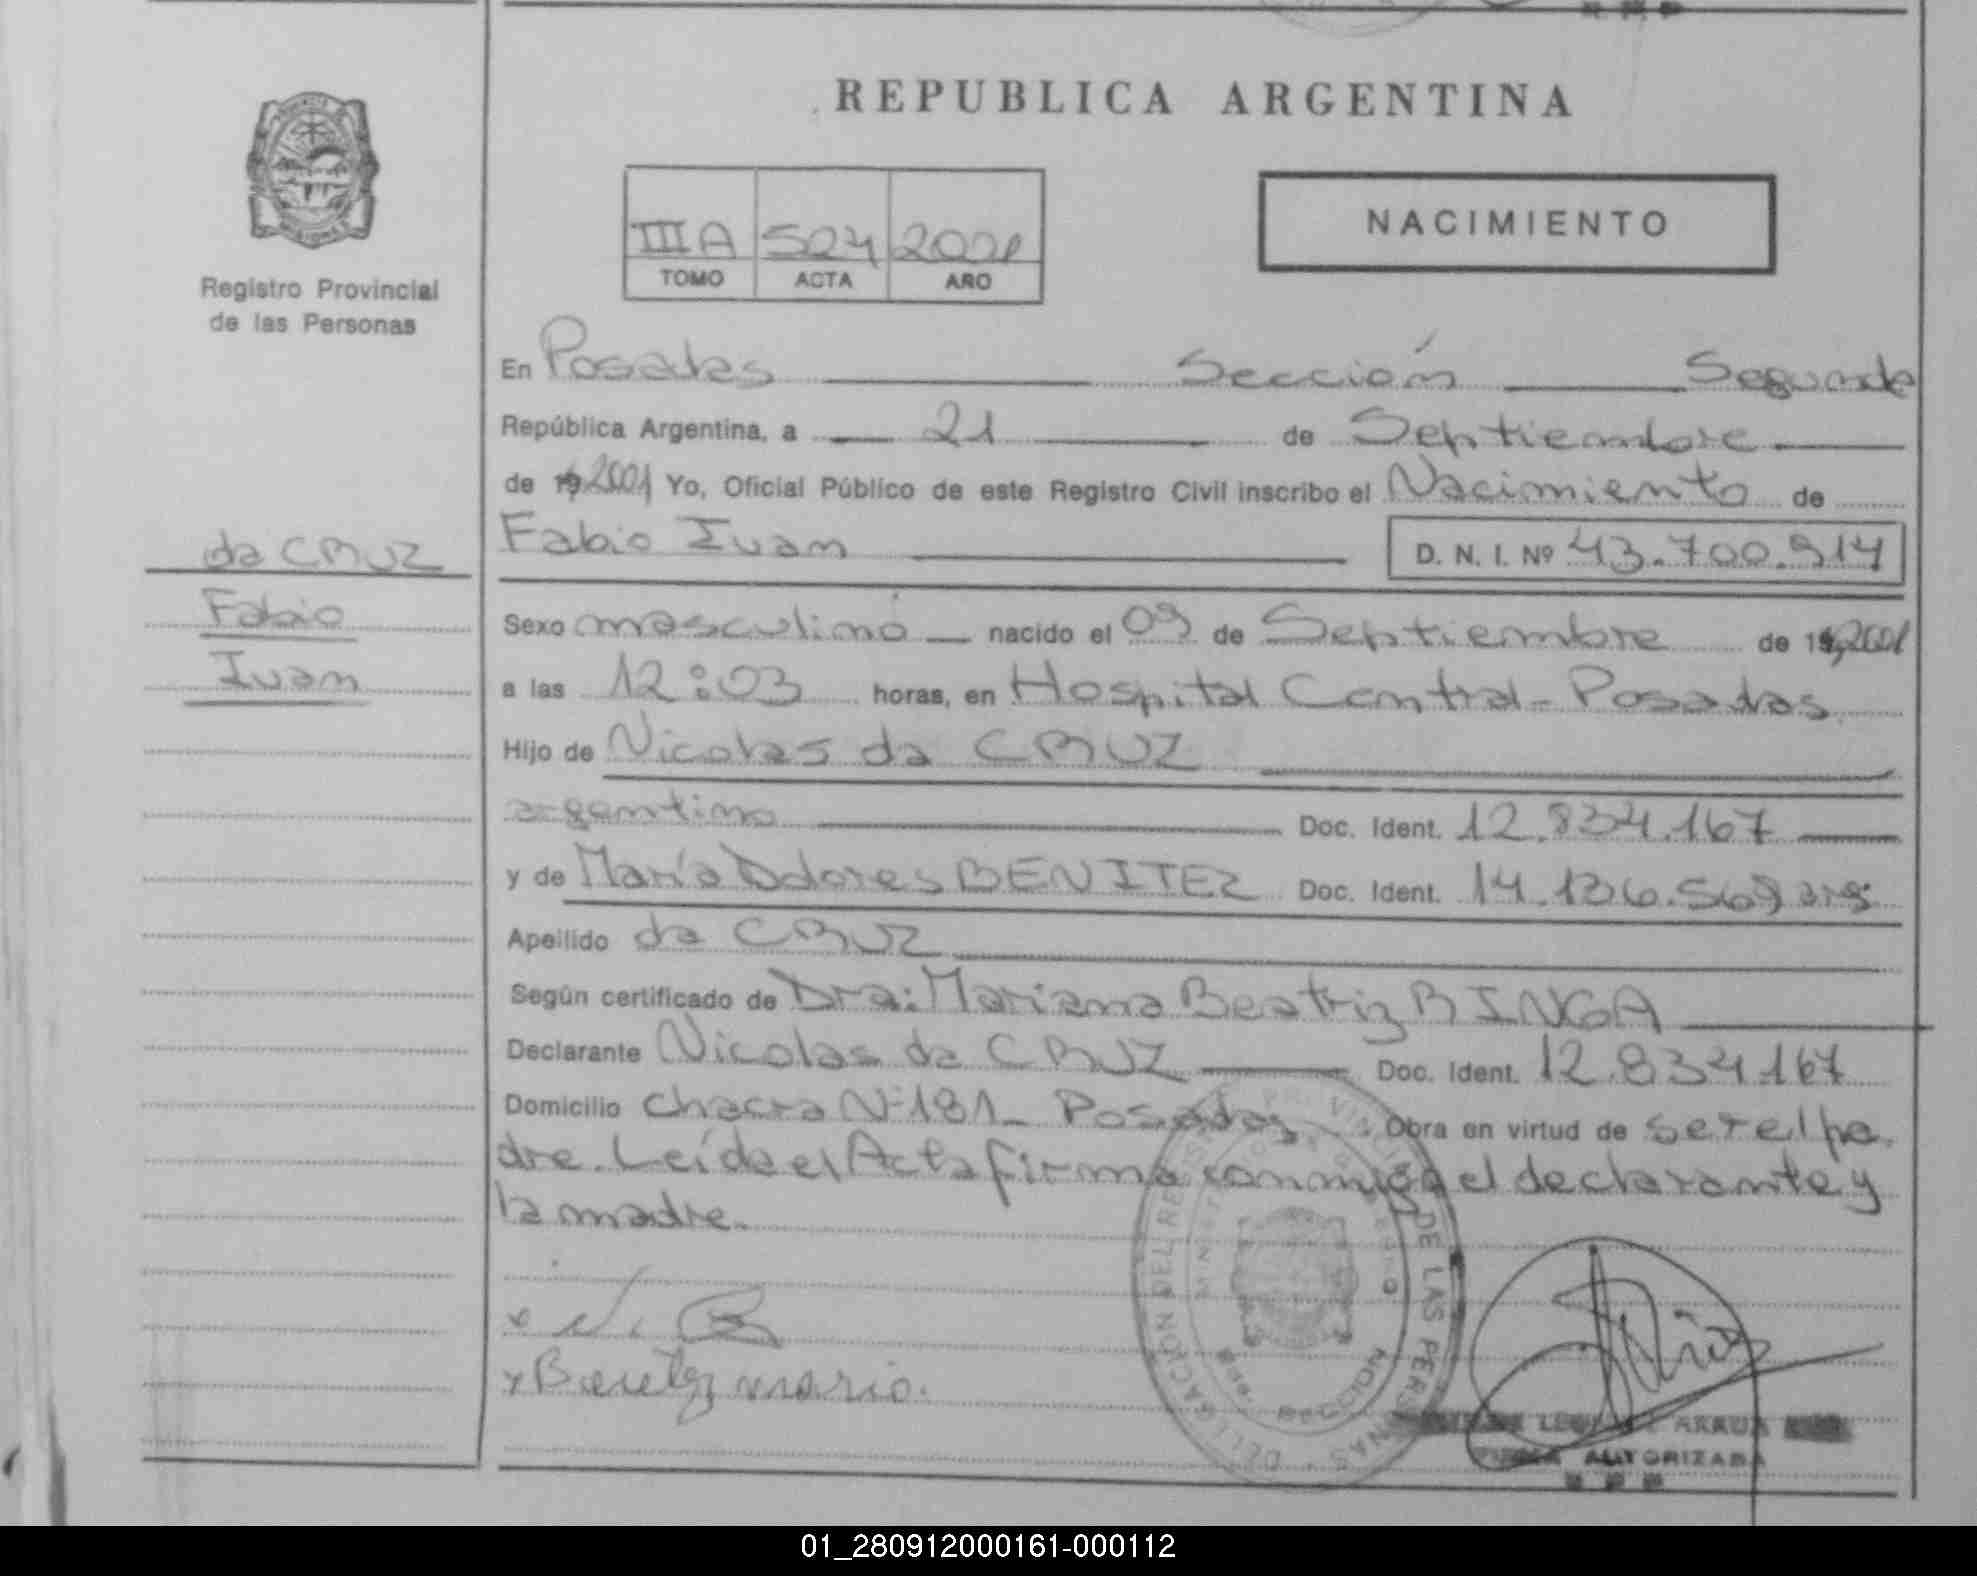 REPUBLICA ARGENTINA
NACIMIENTO
III A 524 2001
TOMO ACTA AÑO
Registro Provincial
de las Personas
En Posadas Sección Segunda
República Argentina, a 21 de Septiembre
de 19 2001 Yo, Oficial Público de este Registro Civil inscribo el Nacimiento de
da CRUZ
Fabio
Ivan
Fabio Ivan D. N. I. Nº 43.700.914
Sexo masculino nacido el 09 de Septiembre de 19 2001
a las 12:03 horas, en Hospital Central - Posadas
Hijo de Nicolas da CRUZ
argentino Doc. Ident. 12.834.167
y de María Dolores BENITEZ Doc. Ident. 14.136.569 arg
Apellido da CRUZ
Según certificado de Dra: Mariana Beatriz BINGA
Declarante Nicolas da CRUZ Doc. Ident. 12.834.167
Domicilio Chacra Nº 181 - Posadas Obra en virtud de ser el pa
dre. Leída el Acta firma conmigo el declarante y
la madre.
x Benitez maria.
DELEGACION DEL REGISTRO PROVINCIAL DE LAS PERSONAS
SECCION
ARRUA
FIRMA AUTORIZADA
01_280912000161-000112